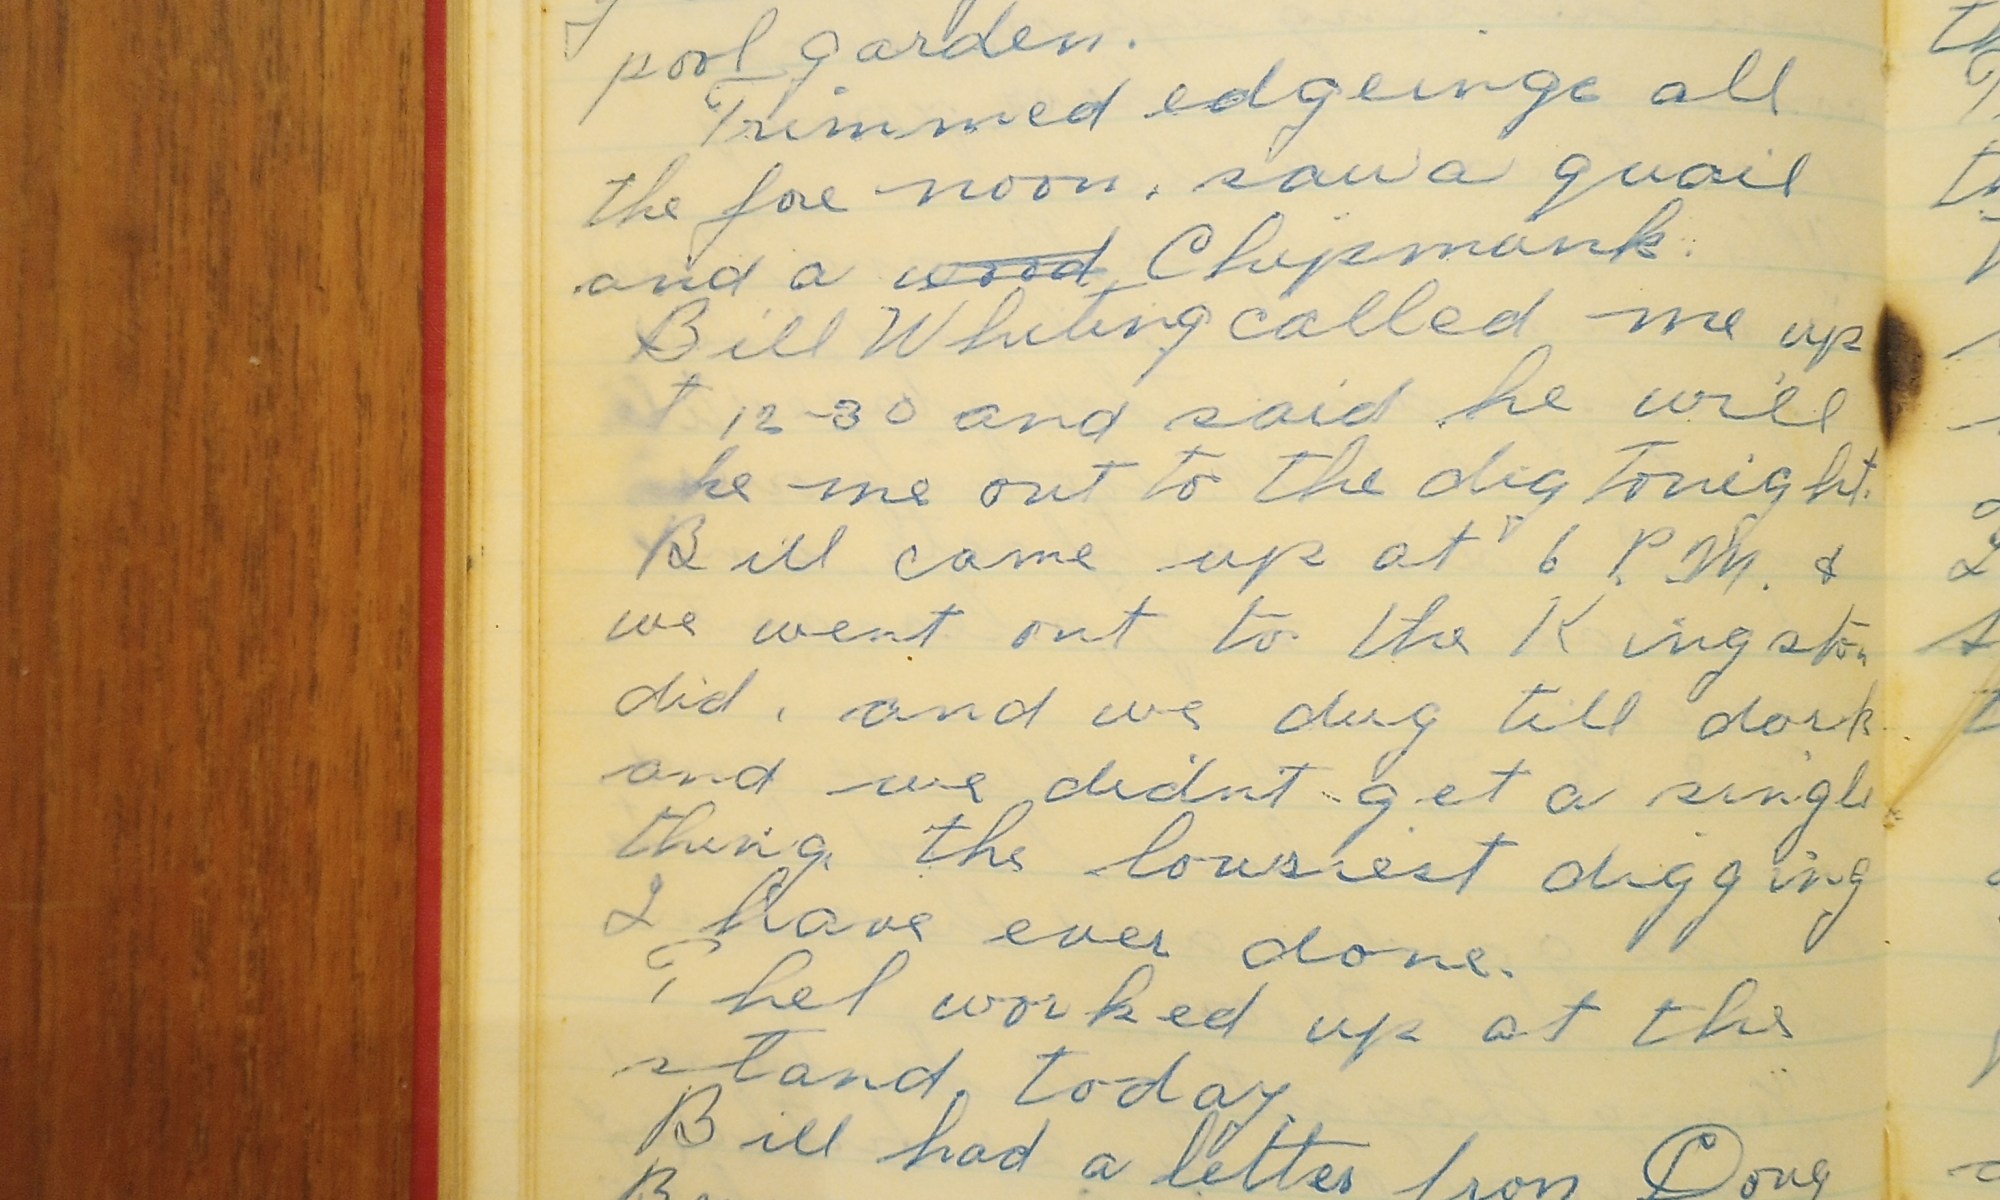 pool garden.
Trimmed edgeings all
the fore noon, saw a quail
and a wood Chipmonk.
Bill Whiting called me up
t 12-30 and said he will
ke me out to the dig tonight.
Bill came up at 6 P.M. &
we went out to the Kingston
did, and we dug till dark
and we didnt get a single
thing, the lowsiest digging
I have ever done.
Thel worked up at the
stand, today.
Bill had a letter from Doug